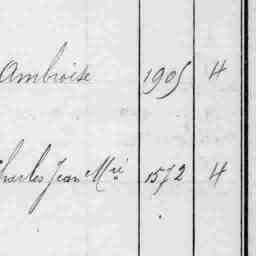 Ambroise 1905 4
Charles Jean Mie 1572 4